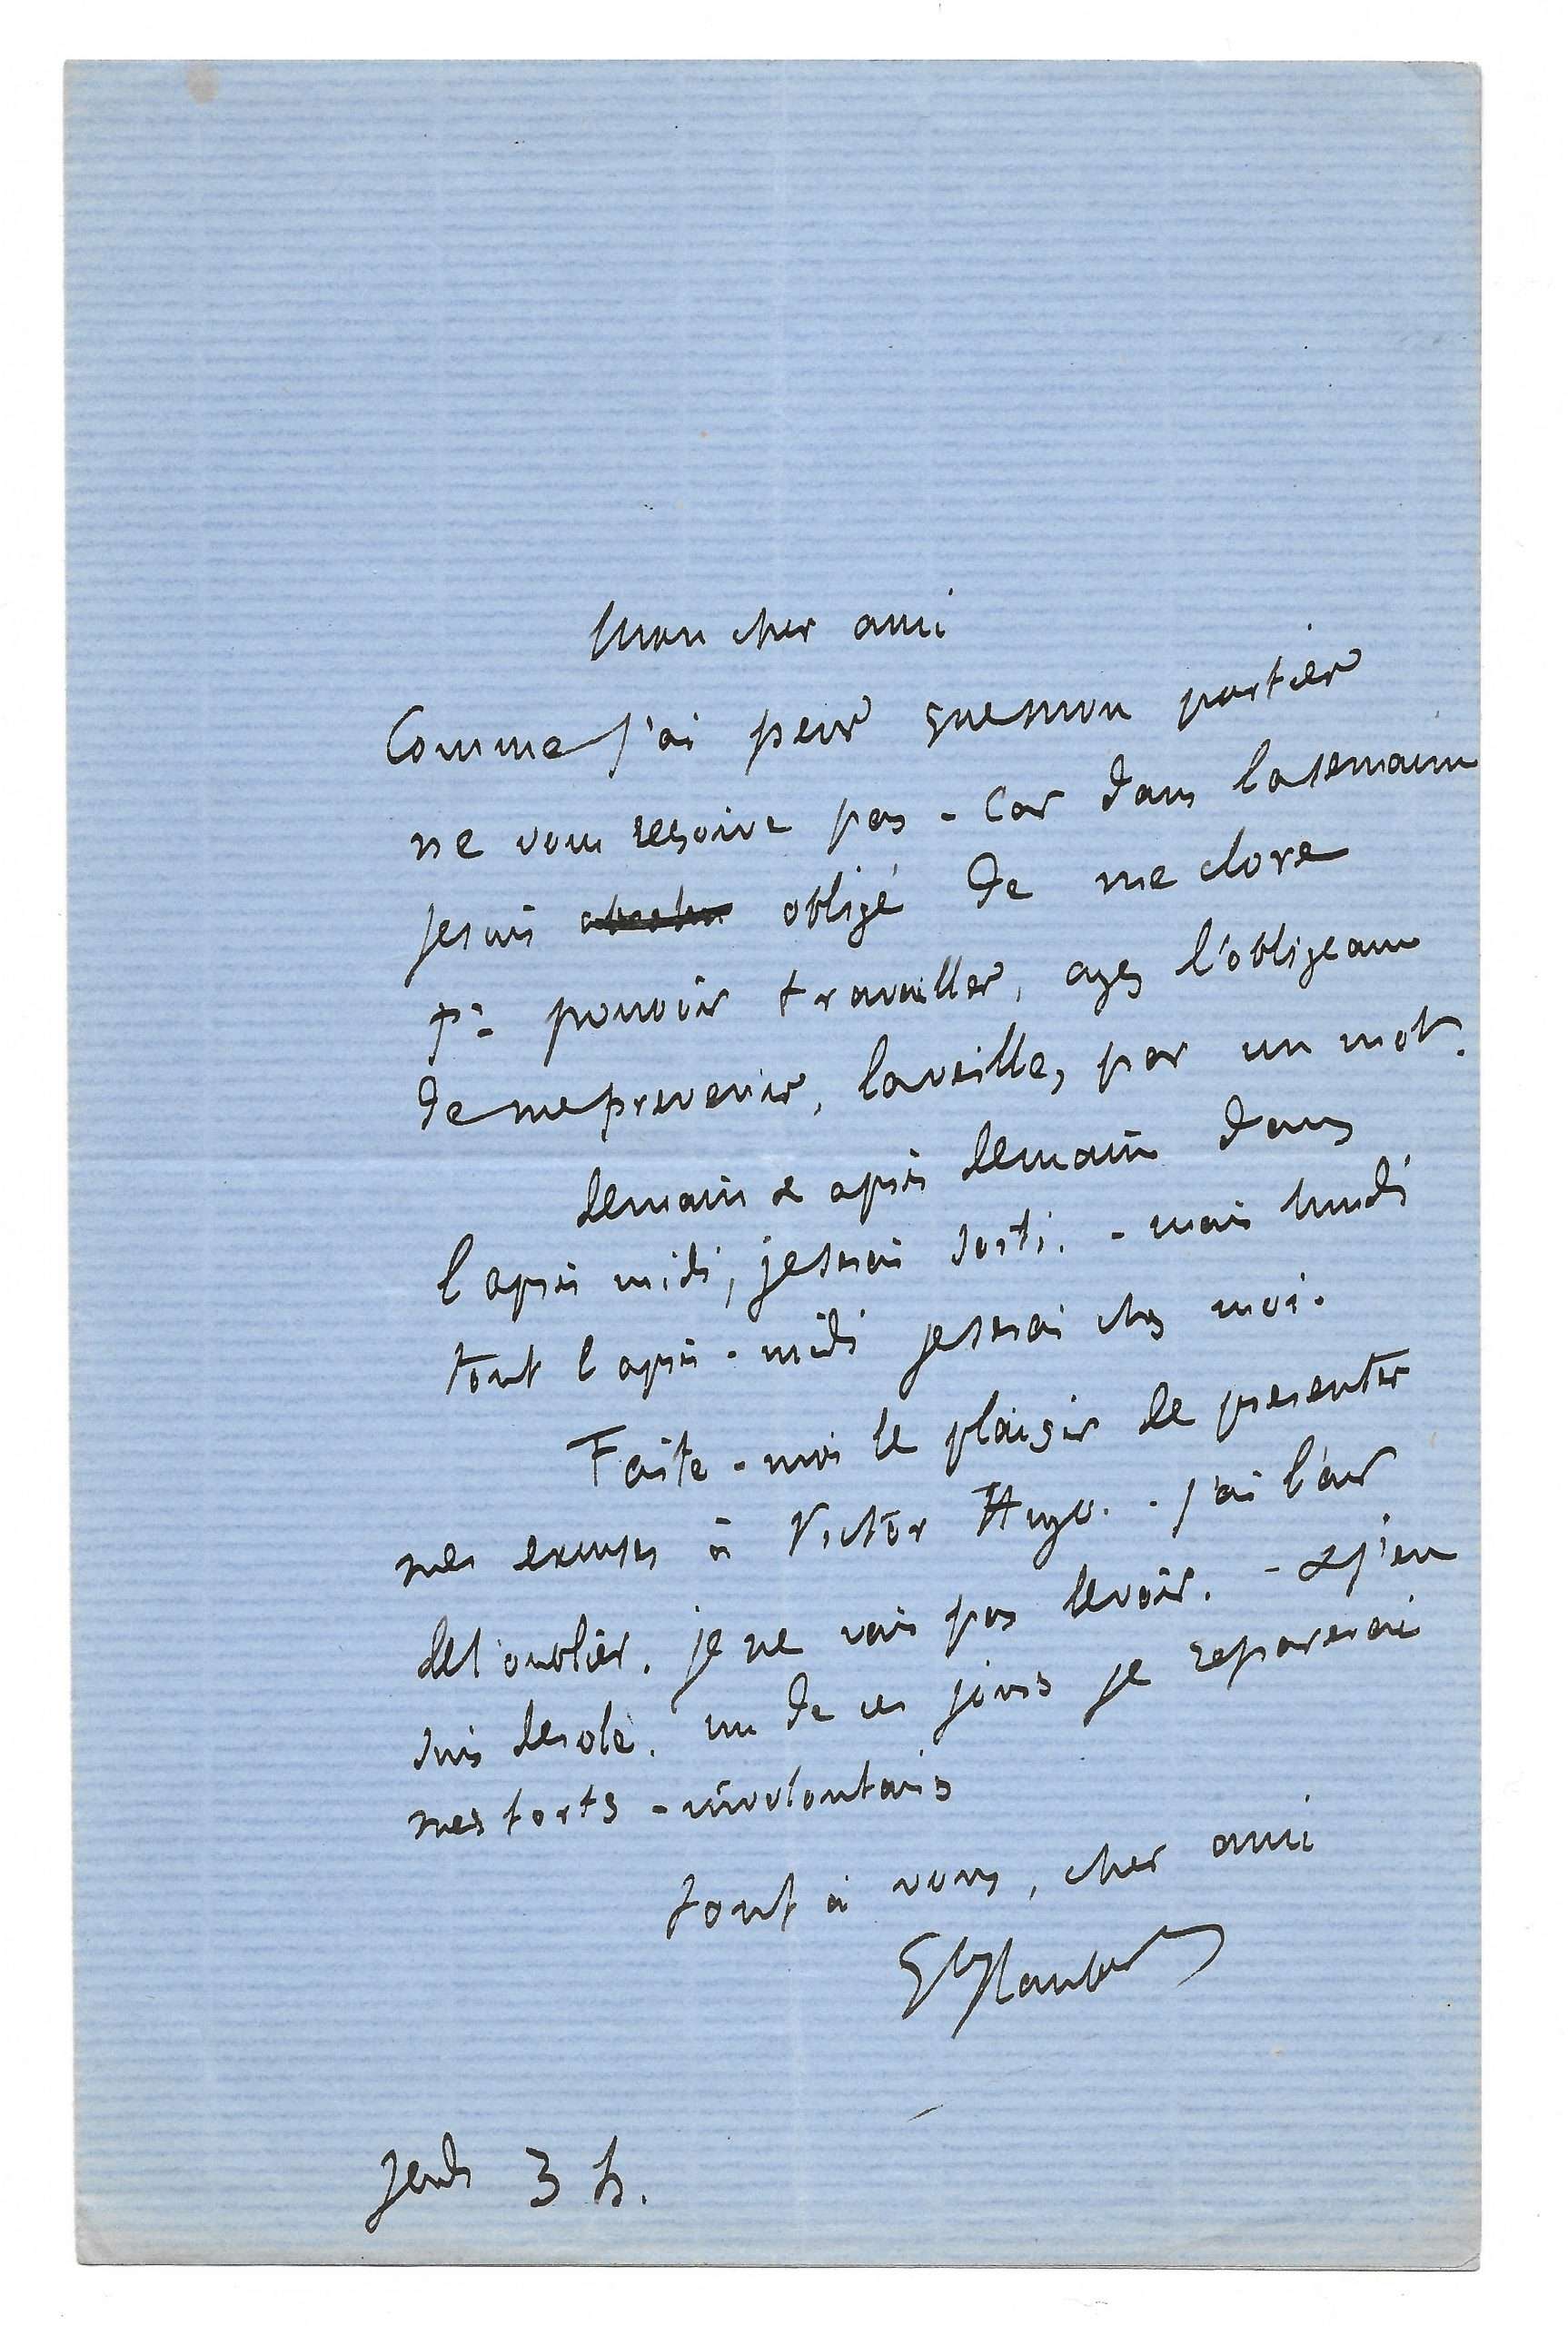 Mon cher ami
Comme j'ai peur que mon portier
ne vous reçoive pas - car dans la semaine
je suis obligé de me clore
pr pouvoir travailler, ayez l'obligeance
de me prevenir, la veille, par un mot.
demain & après demain dans
l'après midi, je serai sorti. - mais lundi
tout l'après-midi je serai chez moi.
Faite-moi le plaisir de presenter
mes excuses à Victor Hugo. - j'ai l'air
de l'oublier. je ne vais pas le voir. - & j'en
suis desolé. un de ces jours je reparerai
mes torts - involontaires
tout à vous, cher ami
Gve Flaubert
jeudi 3 h.